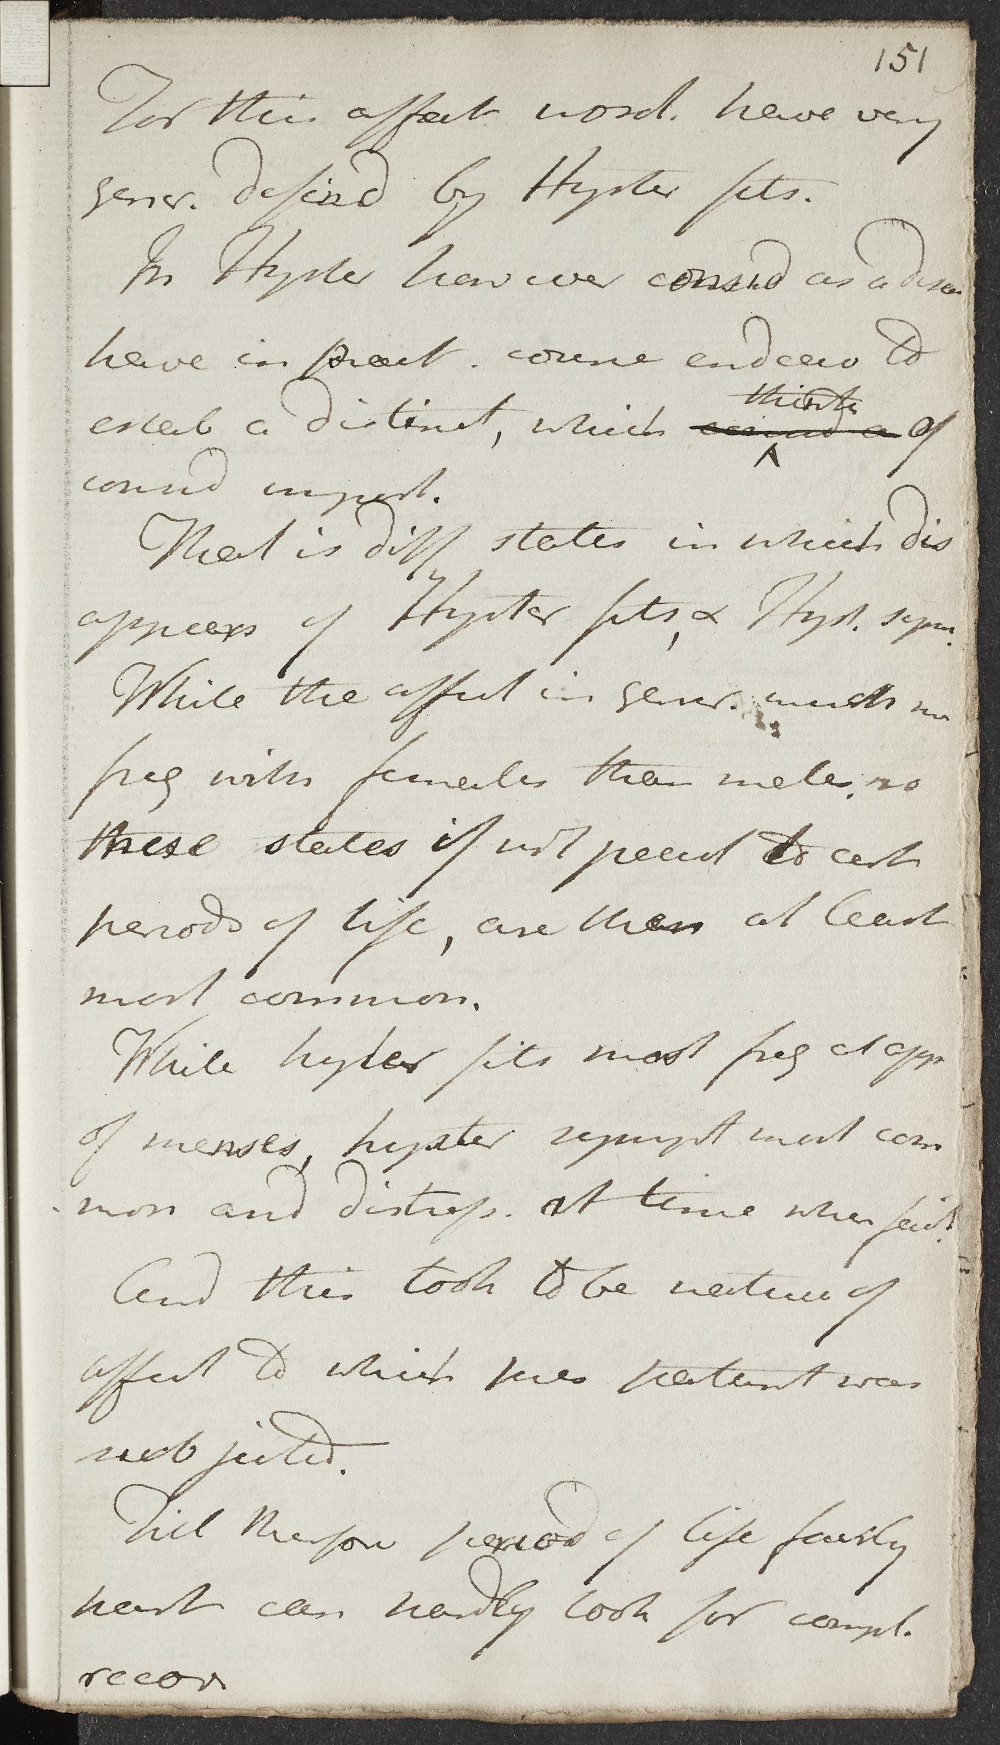 151
For this affect nosol. have very
gener. defind by Hyster fits.
In Hyster however consid as a disea
have in pract. course endeav to
estab a distinct, which think of
consid import.
That is diff states in which dis
appears of Hyster fits, & Hyst. sym.
While the affect in gener. much mo
freq with females than males, so
these states if not pecul to cert
periods of life, are then at least
most common.
While hyster fits most freq at app
of menses, hyster sympt most com
mon and distress. at time when
And this took to be nature of
affect to which pres patient was
subjected.
Till therfore period of life fairly
past can hardly look for compl.
recov.